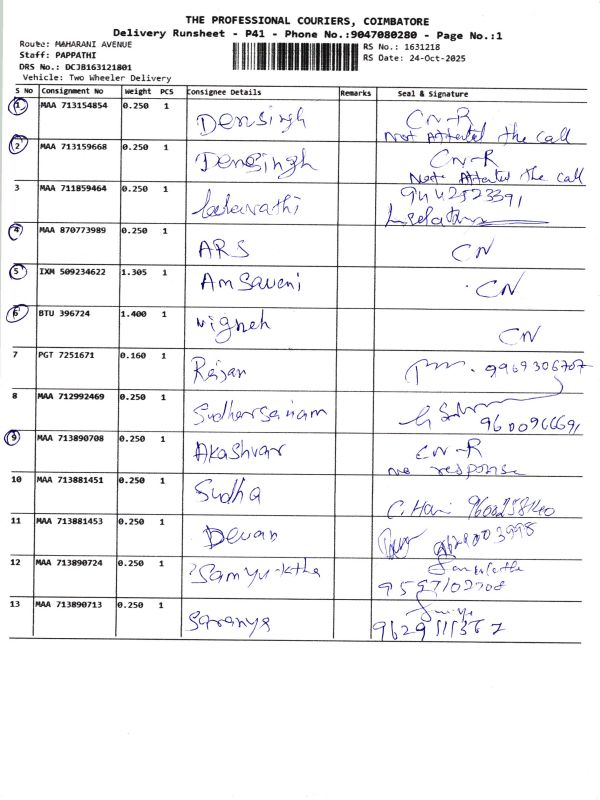 THE PROFESSIONAL COURIERS, COIMBATORE
Delivery Runsheet - P41 - Phone No.:9047080280 - Page No.:1
Route: MAHARANI AVENUE
Staff: PAPPATHI
DRS No.: DCJB163121801
Vehicle: Two Wheeler Delivery
RS No.: 1631218
RS Date: 24-Oct-2025
S No Consignment No Weight PCS Consignee Details Remarks Seal & Signature
1 MAA 713154854 0.250 1 Densingh CN-R
Not Attented the call
2 MAA 713159668 0.250 1 Densingh CN-R
Not Attented the call
3 MAA 711859464 0.250 1 9442523391
4 MAA 870773989 0.250 1 ARS CN
5 IXM 509234622 1.305 1 Amsaveni CN
6 BTU 396724 1.400 1 Vigneh CN
7 PGT 7251671 0.160 1 Rajan 9969306707
8 MAA 712992469 0.250 1 9600966691
9 MAA 713890708 0.250 1 Akashvar CN-R
no response
10 MAA 713881451 0.250 1 Sudha C. Hari
11 MAA 713881453 0.250 1 Devan
12 MAA 713890724 0.250 1 Samyuktha
13 MAA 713890713 0.250 1 Saranya